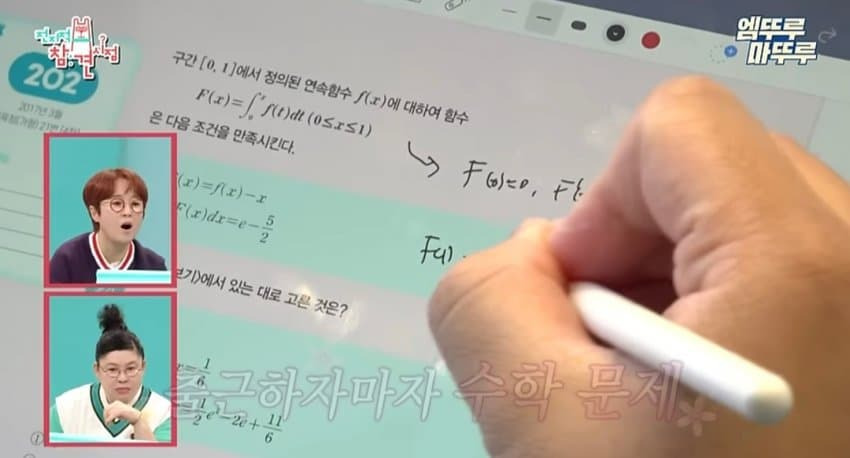 전지적 참견 시점
엠뚜루
마뚜루
202
2017년 3월
21번 (4점)
구간 [0, 1]에서 정의된 연속함수 f(x)에 대하여 함수
F(x)=∫₀ˣ f(t)dt (0≤x≤1)
은 다음 조건을 만족시킨다.
F(0)=0,
(x)=f(x)-x
F(x)dx=e-5/2
F(1)
보기)에서 있는 대로 고른 것은?
x=1/6
1/2e²-2e+11/6
출근하자마자 수학 문제